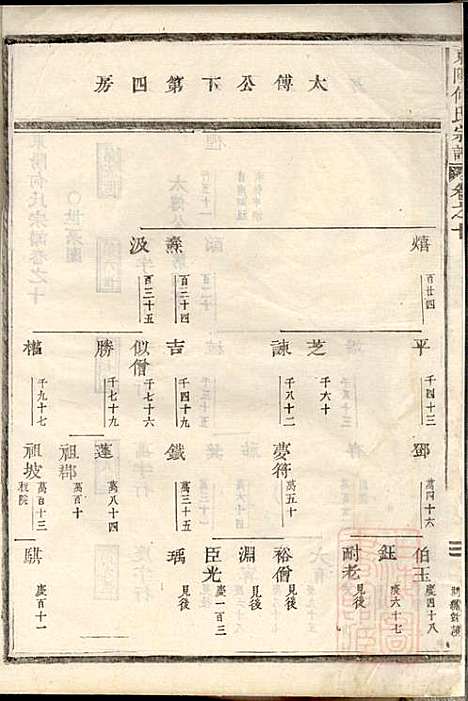 東陽何氏宗譜
卷之十
太傅公下第四房
熺 百廿四
㷼 百三十四
汲 百三十五
平 千四十三
芝 千六十
諫 千八十二
吉 千四十九
似僧 千七十六
勝 千七十九
權 千九十七
鄧 萬四十六
夢符 萬五十
鐵 萬三十五
蓬 萬八十四
祖鄰 萬百十
祖坡 萬百十三
伯玉 慶四十八
鈺 慶六十七
耐老 見後
裕僧 見後
淵 見後
臣光 慶一百三
瑀 見後
騏 慶百十一